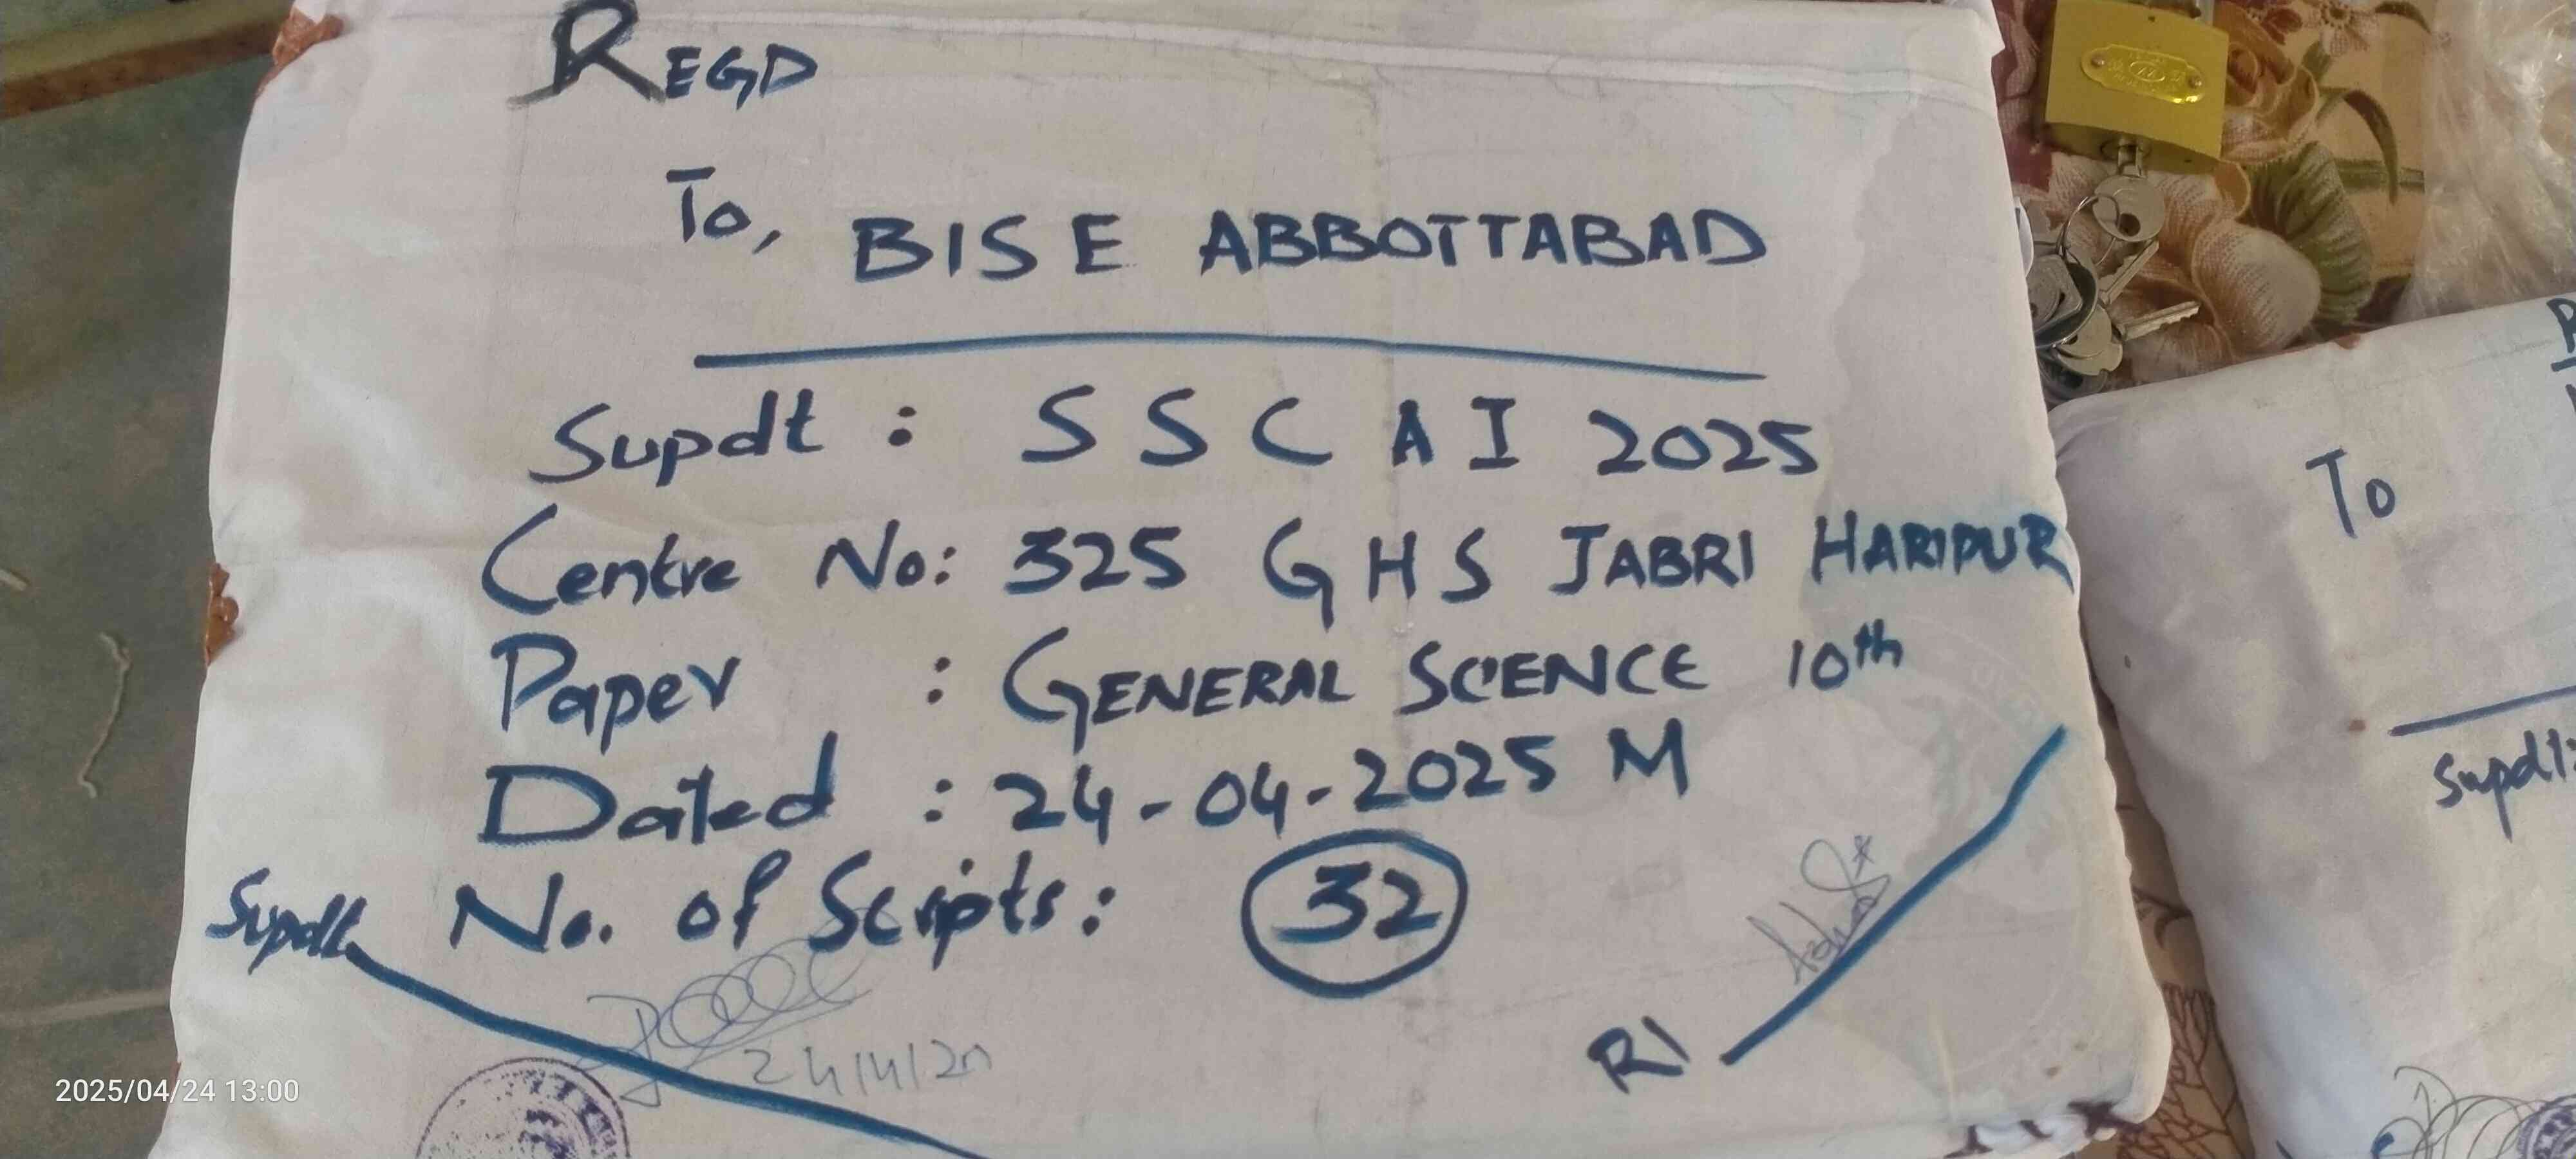 REGD
To, BISE ABBOTTABAD
Supdt : SSC A I 2025
Centre No: 325 GHS JABRI HARIPUR
Paper : GENERAL SCIENCE 10th
Dated : 24-04-2025 M
No. of Scripts: 32
Supdt
RI
To
Supdt:
2025/04/24 13:00